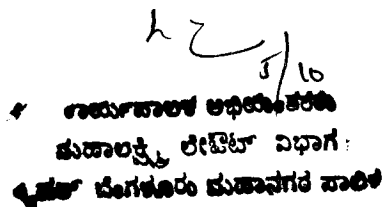 5/10
ಕಾರ್ಯಪಾಲಕ ಅಭಿಯಂತರರು
ಮಹಾಲಕ್ಷ್ಮಿ ಲೇಔಟ್ ವಿಭಾಗ
ಬೃಹತ್ ಬೆಂಗಳೂರು ಮಹಾನಗರ ಪಾಲಿಕೆ